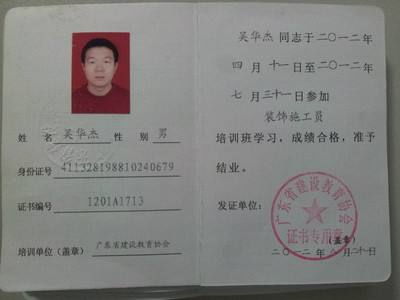 姓 名 吴华杰 性 别 男
身份证号 411328198810240679
证书编号 1201A1713
培训单位(盖章) 广东省建设教育协会
吴华杰 同志于二〇一二年
四 月 十一 日至二〇一二年
七 月 三十一 日参加
装饰施工员
培训班学习,成绩合格,准予
结业。
发证单位:
广东省建设教育协会
证书专用章
(盖章)
二〇一二年 月 二十一日